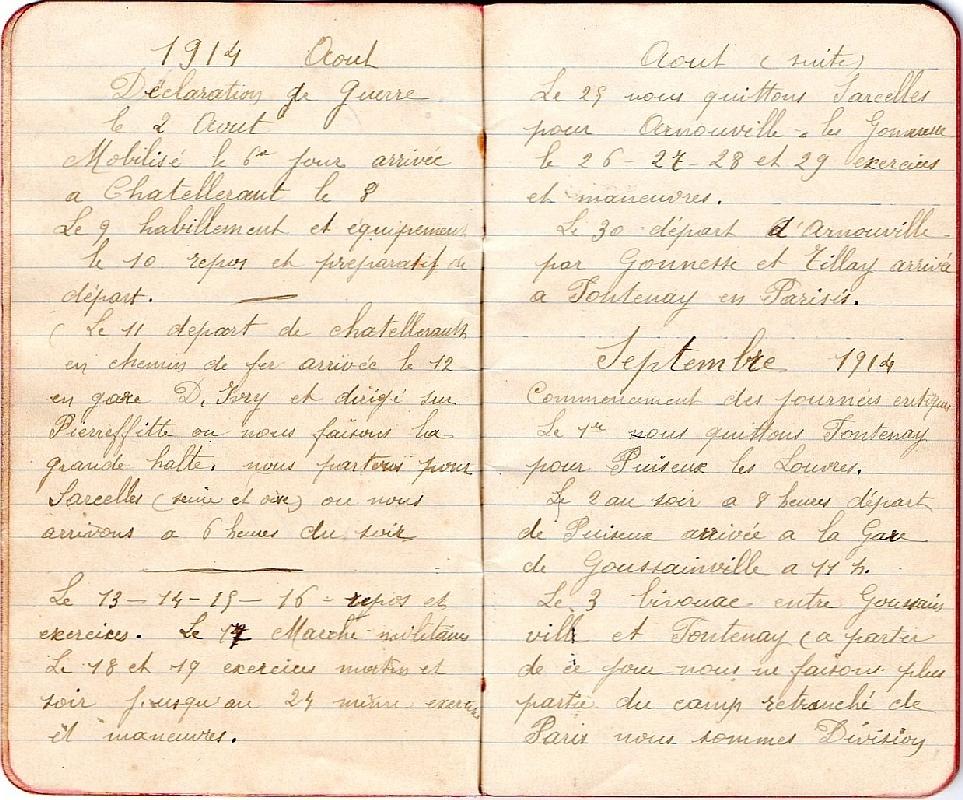 1914 Aout
Déclaration de Guerre
le 2 Aout
Mobilisé le 6e jour arrivée
a Chatelleraut le 8
Le 9 habillement et équipement
le 10 repos et préparatif de
départ.
Le 11 depart de chatellerault
en chemin de fer arrivée le 12
en gare D. Ivry et dirigé sur
Pierreffitte ou nous faisons la
grande halte. nous partons pour
Sarcelles (seine et oise) ou nous
arrivons a 6 heures du soir
Le 13 - 14 - 15 - 16 - repos et
exercices. Le 17 Marche militaire
Le 18 et 19 exercices matin et
soir jusqu'au 24 même exercices
et maneuvres.
Aout (suite)
Le 25 nous quittons Sarcelles
pour Arnouville - les Gonnesse
le 26 - 27 - 28 et 29 exercices
et maneuvres.
Le 30 départ d'Arnouville
par Gonnesse et Tillay arrivée
a Fontenay en Parisis.
Septembre 1914
Commencement des journées critiques
Le 1er nous quittons Fontenay
pour Puiseux les Louvres.
Le 2 au soir a 8 heures départ
de Puiseux arrivée a la Gare
de Goussainville a 11 h.
Le 3 bivouac entre Goussain
ville et Fontenay (a partir
de ce jour nous ne faisons plus
partie du camp retranché de
Paris nous sommes Division